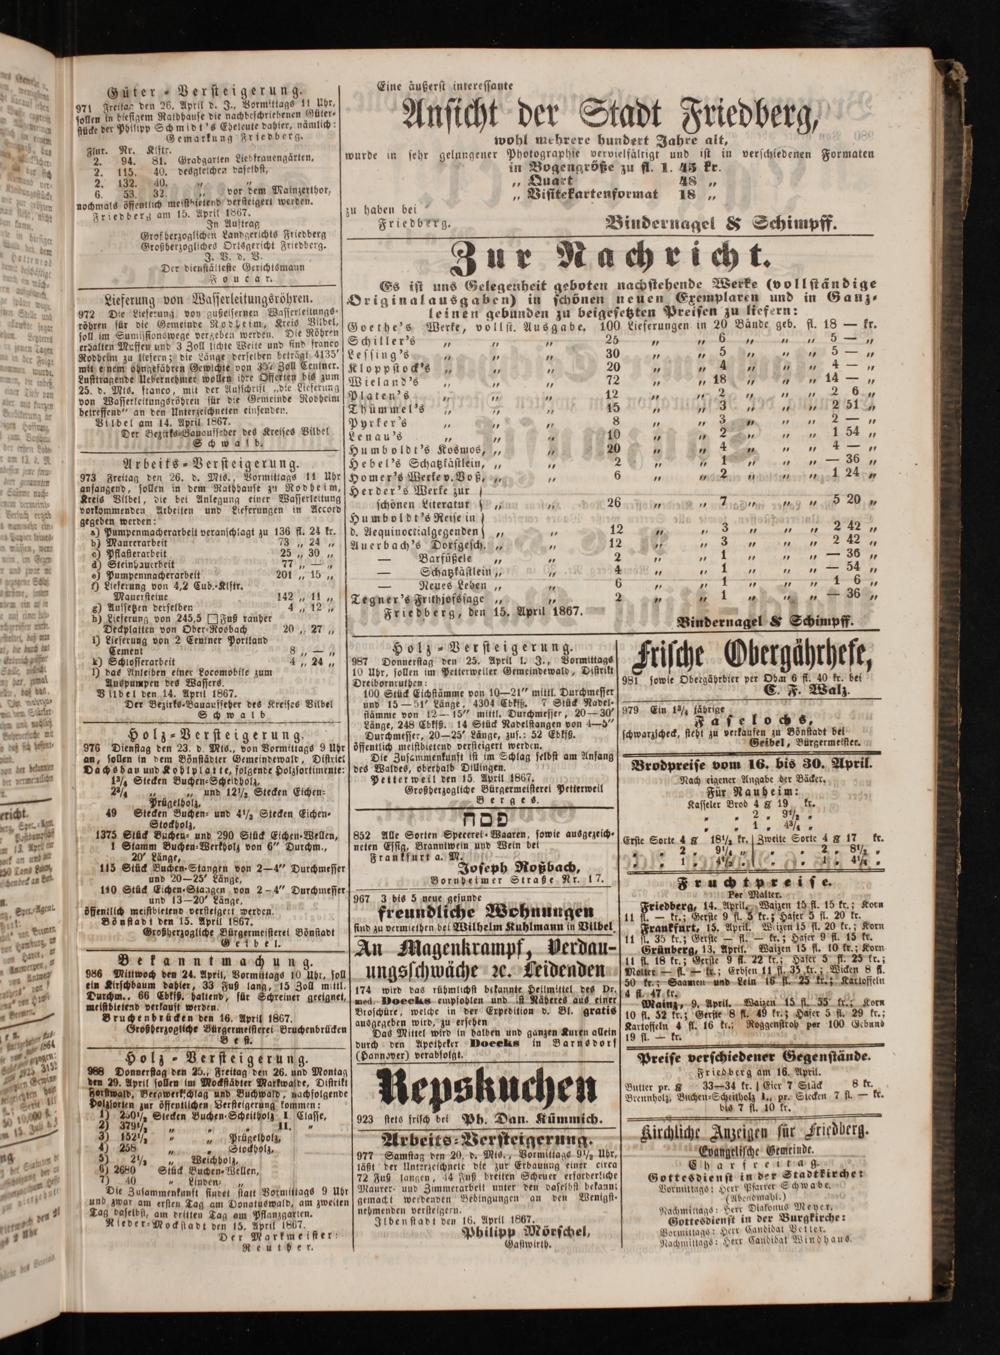 Güter-Versteigerung.
971 Freitag den 26. April d. J., Vormittags 11 Uhr,
sollen in hiesigem Rathhause die nachbeschriebenen Güter-
stücke der Philipp Schmidt's Eheleute dahier, nämlich:
Gemarkung Friedberg.
Flur. Nr. Klftr.
2. 94. 81. Grabgarten Liebfrauengärten,
2. 115. 40. desgleichen daselbst,
2. 132. 40. „ „
6. 53. 32. „ vor dem Mainzerthor,
nochmals öffentlich meistbietend versteigert werden.
Friedberg am 15. April 1867.
In Auftrag
Großherzoglichen Landgerichts Friedberg
Großherzogliches Ortsgericht Friedberg.
J. V. d. V.
Der dienstälteste Gerichtsmann
Foucar.
Lieferung von Wasserleitungsröhren.
972 Die Lieferung von gußeisernen Wasserleitungs-
röhren für die Gemeinde Rodheim, Kreis Vilbel,
soll im Sumissionswege vergeben werden. Die Röhren
erhalten Muffen und 3 Zoll lichte Weite und sind franco
Rodheim zu liefern; die Länge derselben beträgt 4135'
mit einem ohngefähren Gewichte von Zoll Centner.
Lusttragende Uebernehmer wollen ihre Offerten bis zum
25. d. Mts. franco, mit der Aufschrift „die Lieferung
von Wasserleitungsröhren für die Gemeinde Rodheim
betreffend" an den Unterzeichneten einsenden.
Vilbel am 14. April 1867.
Der Bezirks-Bauaufseher des Kreises Vilbel
Schwalb.
Arbeits-Versteigerung.
973 Freitag den 26. d. Mts., Vormittags 11 Uhr
anfangend, sollen in dem Rathhause zu Rodheim,
Kreis Vilbel, die bei Anlegung einer Wasserleitung
vorkommenden Arbeiten und Lieferungen in Accord
gegeben werden:
a) Pumpenmacherarbeit veranschlagt zu 136 fl. 24 kr.
b) Maurerarbeit 73 „ 24 „
c) Pflasterarbeit 25 „ 30 „
d) Steinhauerarbeit 77 „ — „
e) Pumpenmacherarbeit 201 „ 15 „
f) Lieferung von 4,2 Cub.-Klftr.
Mauersteine 142 „ 11 „
g) Aufsetzen derselben 4 „ 12 „
h) Lieferung von 245,5 □Fuß rauher
Deckplatten von Ober-Rosbach 20 „ 27 „
i) Lieferung von 2 Centner Portland
Cement 8 „ — „
k) Schlosserarbeit 4 „ 24 „
l) das Anleihen einer Locomobile zum
Auspumpen des Wassers.
Vilbel den 14. April 1867.
Der Bezirks-Bauaufseher des Kreises Vilbel
Schwalb
Holz-Versteigerung.
976 Dienstag den 23. d. Mts., von Vormittags 9 Uhr
an, sollen in dem Bönstädter Gemeindewald, District
Dachsbau und Kohlplatte, folgende Holzsortimente:
1¾ Stecken Buchen-Scheitholz,
2¾ „ „ und 12½ Stecken Eichen-
Prügelholz,
49 Stecken Buchen- und 4½ Stecken Eichen-
Stockholz,
1375 Stück Buchen- und 290 Stück Eichen-Wellen,
1 Stamm Buchen-Werkholz von 6" Durchm.,
20' Länge,
115 Stück Buchen-Stangen von 2—4" Durchmesser
und 20—25' Länge,
110 Stück Eichen-Stangen von 2—4" Durchmesser
und 13—20' Länge,
öffentlich meistbietend versteigert werden.
Bönstadt den 15. April 1867.
Großherzogliche Bürgermeisterei Bönstadt
Geibel.
Bekanntmachung.
986 Mittwoch den 24. April, Vormittags 10 Uhr, soll
ein Kirschbaum dahier, 33 Fuß lang, 15 Zoll mittl.
Durchm., 66 Ebkfß. haltend, für Schreiner geeignet,
meistbietend verkauft werden.
Bruchenbrücken den 16. April 1867.
Großherzogliche Bürgermeisterei Bruchenbrücken
Best.
Holz-Versteigerung.
988 Donnerstag den 25., Freitag den 26. und Montag
den 29. April sollen im Mockstädter Markwalde, Distrikt
Forstwald, Bergwerkschlag und Buchwald, nachfolgende
Holzsorten zur öffentlichen Versteigerung kommen:
1) 250½ Stecken Buchen-Scheitholz I. Classe,
2) 379½ „ „ „ II. „
3) 152½ „ „ Prügelholz,
4) 258 „ „ Stockholz,
5) 2½ „ Weichholz,
6) 2680 Stück Buchen-Wellen,
7) 40 „ Linden- „
Die Zusammenkunft findet statt Vormittags 9 Uhr
und zwar am ersten Tag am Donatuswald, am zweiten
Tag daselbst, am dritten Tag am Pflanzgarten.
Nieder-Mockstadt den 15. April 1867.
Der Markmeister:
Reuther.
Eine äußerst interessante
Ansicht der Stadt Friedberg,
wohl mehrere hundert Jahre alt,
wurde in sehr gelungener Photographie vervielfältigt und ist in verschiedenen Formaten
in Bogengröße zu fl. 1. 45 kr.
„ Quart 48 „
„ Visitekartenformat 18 „
zu haben bei
Friedberg. Bindernagel & Schimpff.
Zur Nachricht.
Es ist uns Gelegenheit geboten nachstehende Werke (vollständige
Originalausgaben) in schönen neuen Exemplaren und in Ganz-
leinen gebunden zu beigesetzten Preisen zu liefern:
Goethe's Werke, vollst. Ausgabe, 100 Lieferungen in 20 Bände geb. fl. 18 — kr.
Schiller's „ „ „ 25 „ 6 „ „ 5 — „
Lessing's „ „ „ 30 „ 5 „ „ 5 — „
Kloppstock's „ „ „ 20 „ 4 „ „ 4 — „
Wieland's „ „ „ 72 „ 18 „ „ 14 — „
Platen's „ „ „ 12 „ 2 „ „ 2 6 „
Thümmel's „ „ „ 15 „ 3 „ „ 2 51 „
Pyrker's „ „ „ 8 „ 3 „ „ 2 — „
Lenau's „ „ „ 10 „ 2 „ „ 1 54 „
Humboldt's Kosmos, „ „ 20 „ 4 „ „ 4 — „
Hebel's Schatzkästlein, „ „ 2 „ 1 „ „ — 36 „
Homer's Werke v. Voß, „ „ 6 „ 2 „ „ 1 24 „
Herder's Werke zur
schönen Literatur „ „ 26 „ 7 „ „ 5 20 „
Humboldt's Reise in
d. Aequinoctialgegenden „ „ 12 „ 3 „ „ 2 42 „
Auerbach's Dorfgesch. „ „ 12 „ 3 „ „ 2 42 „
— Barfüßele „ „ 2 „ 1 „ „ — 36 „
— Schatzkästlein „ „ 4 „ 1 „ „ — 54 „
— Neues Leben „ „ 6 „ 1 „ „ 1 6 „
Tegner's Frithjofssage „ „ 2 „ 1 „ „ — 36 „
Friedberg, den 15. April 1867.
Bindernagel & Schimpff.
Holz-Versteigerung.
987 Donnerstag den 25. April l. J., Vormittags
10 Uhr, sollen im Petterweiler Gemeindewald, Distrikt
Dreibornruthen:
100 Stück Eichstämme von 10—21" mittl. Durchmesser
und 15—51' Länge, 4304 Ebkfß. 7 Stück Nadel-
stämme von 12—15" mittl. Durchmesser, 20—30'
Länge, 248 Ebkfß. 14 Stück Nadelstangen von 4—5"
Durchmesser, 20—25' Länge, zus.: 52 Ebkfß.
öffentlich meistbietend versteigert werden.
Die Zusammenkunft ist im Schlag selbst am Anfang
des Waldes, oberhalb Dillingen.
Petterweil den 15. April 1867.
Großherzogliche Bürgermeisterei Petterweil
Berges.
פסח
852 Alle Sorten Specerei-Waaren, sowie ausgezeich-
neten Essig, Branntwein und Wein bei
Frankfurt a. M.
Joseph Roßbach,
Bornheimer Straße Nr. 17.
967 3 bis 5 neue gesunde
freundliche Wohnungen
sind zu vermiethen bei Wilhelm Kuhlmann in Vilbel
An Magenkrampf, Verdau-
ungsschwäche ꝛc. Leidenden
174 wird das rühmlichst bekannte Heilmittel des Dr.
med. Doecks empfohlen und ist Näheres aus einer
Broschüre, welche in der Expedition d. Bl. gratis
ausgegeben wird, zu ersehen
Das Mittel wird in halben und ganzen Kuren allein
durch den Apotheker Doecks in Barnsdorf
(Hannover) verabfolgt.
Repskuchen
923 stets frisch bei Ph. Dan. Kümmich.
Arbeits-Versteigerung.
977 Samstag den 20. d. Mts., Vormittags 9½ Uhr,
läßt der Unterzeichnete die zur Erbauung einer circa
72 Fuß langen, 44 Fuß breiten Scheuer erforderliche
Maurer- und Zimmerarbeit unter den daselbst bekannt
gemacht werdenden Bedingungen an den Wenigst-
nehmenden versteigern.
Ilbenstadt den 16. April 1867.
Philipp Mörschel,
Gastwirth.
Frische Obergährhefe,
981 sowie Obergährbier per Ohm 6 fl. 40 kr. bei
C. F. Walz.
979 Ein 1¾ jährige
Faselochs,
schwarzscheck, steht zu verkaufen zu Bönstadt bei
Geibel, Bürgermeister.
Brodpreise vom 16. bis 30. April.
Nach eigener Angabe der Bäcker.
Für Nauheim:
Kasseler Brod 4 ℔ 19 kr.
„ „ 2 „ 9½ „
„ „ 1 „ 4¾ „
Erste Sorte 4 ℔ 18½ kr. Zweite Sorte 4 ℔ 17 kr.
„ „ 2 „ 9¼ „ „ „ 2 „ 8½ „
„ „ 1 „ 4½ „ „ „ 1 „ 4¼ „
Fruchtpreise.
Per Malter.
Friedberg, 14. April. Waizen 15 fl. 15 kr.; Korn
11 fl. — kr.; Gerste 9 fl. 5 kr.; Hafer 5 fl. 20 kr.
Frankfurt, 15. April. Waizen 15 fl. 20 kr.; Korn
11 fl. 35 kr.; Gerste — fl. — kr.; Hafer 9 fl. 15 kr.
Grünberg, 13. April. Waizen 15 fl. 10 kr.; Korn
11 fl. 18 kr.; Gerste 9 fl. 22 kr.; Hafer 5 fl. 25 kr.;
Molter — fl. — kr.; Erbsen 11 fl. 35 kr.; Wicken 8 fl.
50 kr.; Saamen und Lein 16 fl. 25 kr.; Kartoffeln
4 fl. 47 kr.
Mainz, 9. April. Waizen 15 fl. 55 kr.; Korn
10 fl. 52 kr.; Gerste 8 fl. 49 kr.; Hafer 5 fl. 29 kr.;
Kartoffeln 4 fl. 16 kr.; Roggenstroh per 100 Gebund
19 fl. — kr.
Preise verschiedener Gegenstände.
Friedberg am 16. April.
Butter pr. ℔ 33—34 kr. | Eier 7 Stück 8 kr.
Brennholz, Buchen-Scheitholz 1., pr. Stecken 7 fl. — kr.
bis 7 fl. 10 kr.
Kirchliche Anzeigen für Friedberg.
Evangelische Gemeinde.
Charfreitag.
Gottesdienst in der Stadtkirche:
Vormittags: Herr Pfarrer Schwabe.
(Abendmahl.)
Nachmittags: Herr Diakonus Meyer.
Gottesdienst in der Burgkirche:
Vormittags: Herr Candidat Vetter.
Nachmittags: Herr Candidat Windhaus.